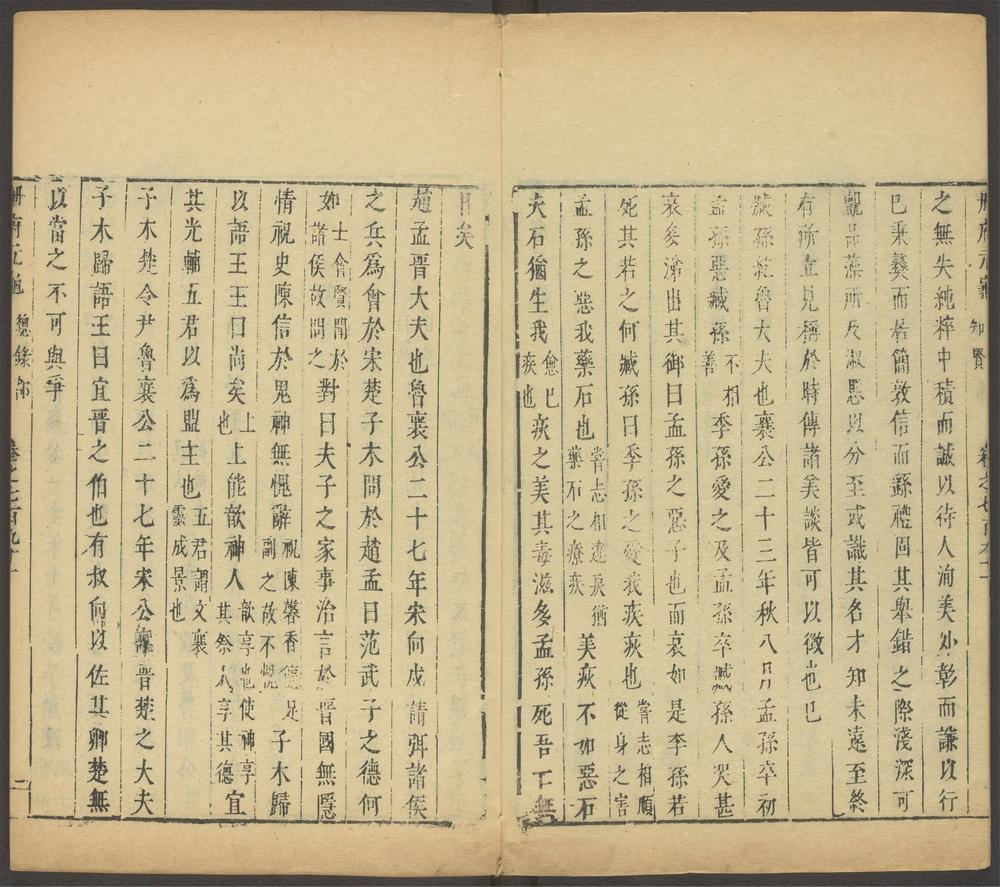 冊府元龜 知賢 卷之七百九十一
之無失純粹中積而誠以待人洵美外彰而謙以行
巳秉彝而居簡敦信而繇禮固其舉錯之際淺深可
觀品藻所及淑慝以分至或識其名才知未遠至終
有所立見稱於時傳諸美談皆可以徵也巳
臧孫紇魯大夫也襄公二十三年秋八月孟孫卒初
孟孫惡臧孫不相善季孫愛之及孟孫卒臧孫人哭甚
哀多涕出其御曰孟孫之惡子也而哀如是季孫若
死其若之何臧孫曰季孫之愛我疾疢也常志相順從身之害
孟孫之惡我藥石也常志相違戾猶藥石之療疾美疢不如惡石
夫石猶生我愈巳疾也疢之美其毒滋多孟孫死吾亡無
日矣
趙孟晉大夫也魯襄公二十七年宋向戌請弭諸侯
之兵爲會於宋楚子木問於趙孟曰范武子之德何
如士會賢聞於諸侯故問之對曰夫子之家事治言於晉國無隱
情祝史陳信於鬼神無愧辭祝陳馨香德足副之故不愧子木歸
以語王王曰尚矣上也上能歆神人歆享也使神享其祭人享其德宜
其光輔五君以爲盟主也五君謂文襄靈成景也
子木楚令尹魯襄公二十七年宋公饗晉楚之大夫
子木歸語王曰宜晉之伯也有叔向以佐其卿楚無
以當之不可與爭
冊府元龜 總錄部 卷之七百九十一 二